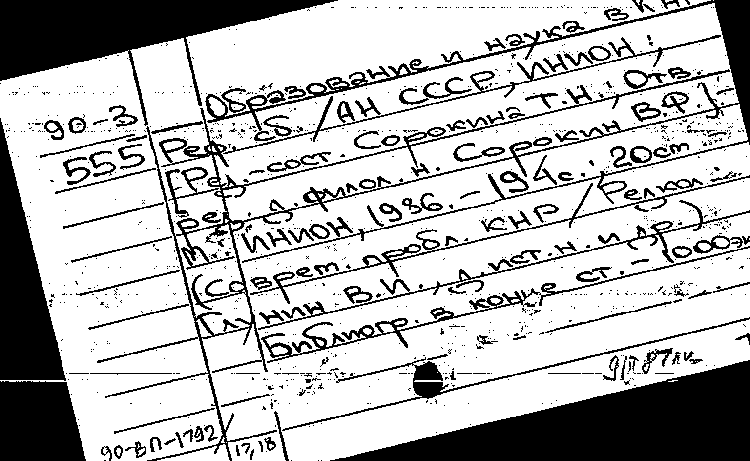 Образование и наука в КНР
90-3
555
Реф. сб. / АН СССР, ИНИОН;
[Ред.-сост. Сорокина Т.Н.; Отв.
ред. д. филол. н. Сорокин В.Ф.].-
М.: ИНИОН, 1986. - 194с.; 20см
(Соврем. пробл. КНР / Редкол.:
Глунин В.И., д.ист.н. и др.)
Библиогр. в конце ст. - 1000эк
90-ВП-1792/
17,18